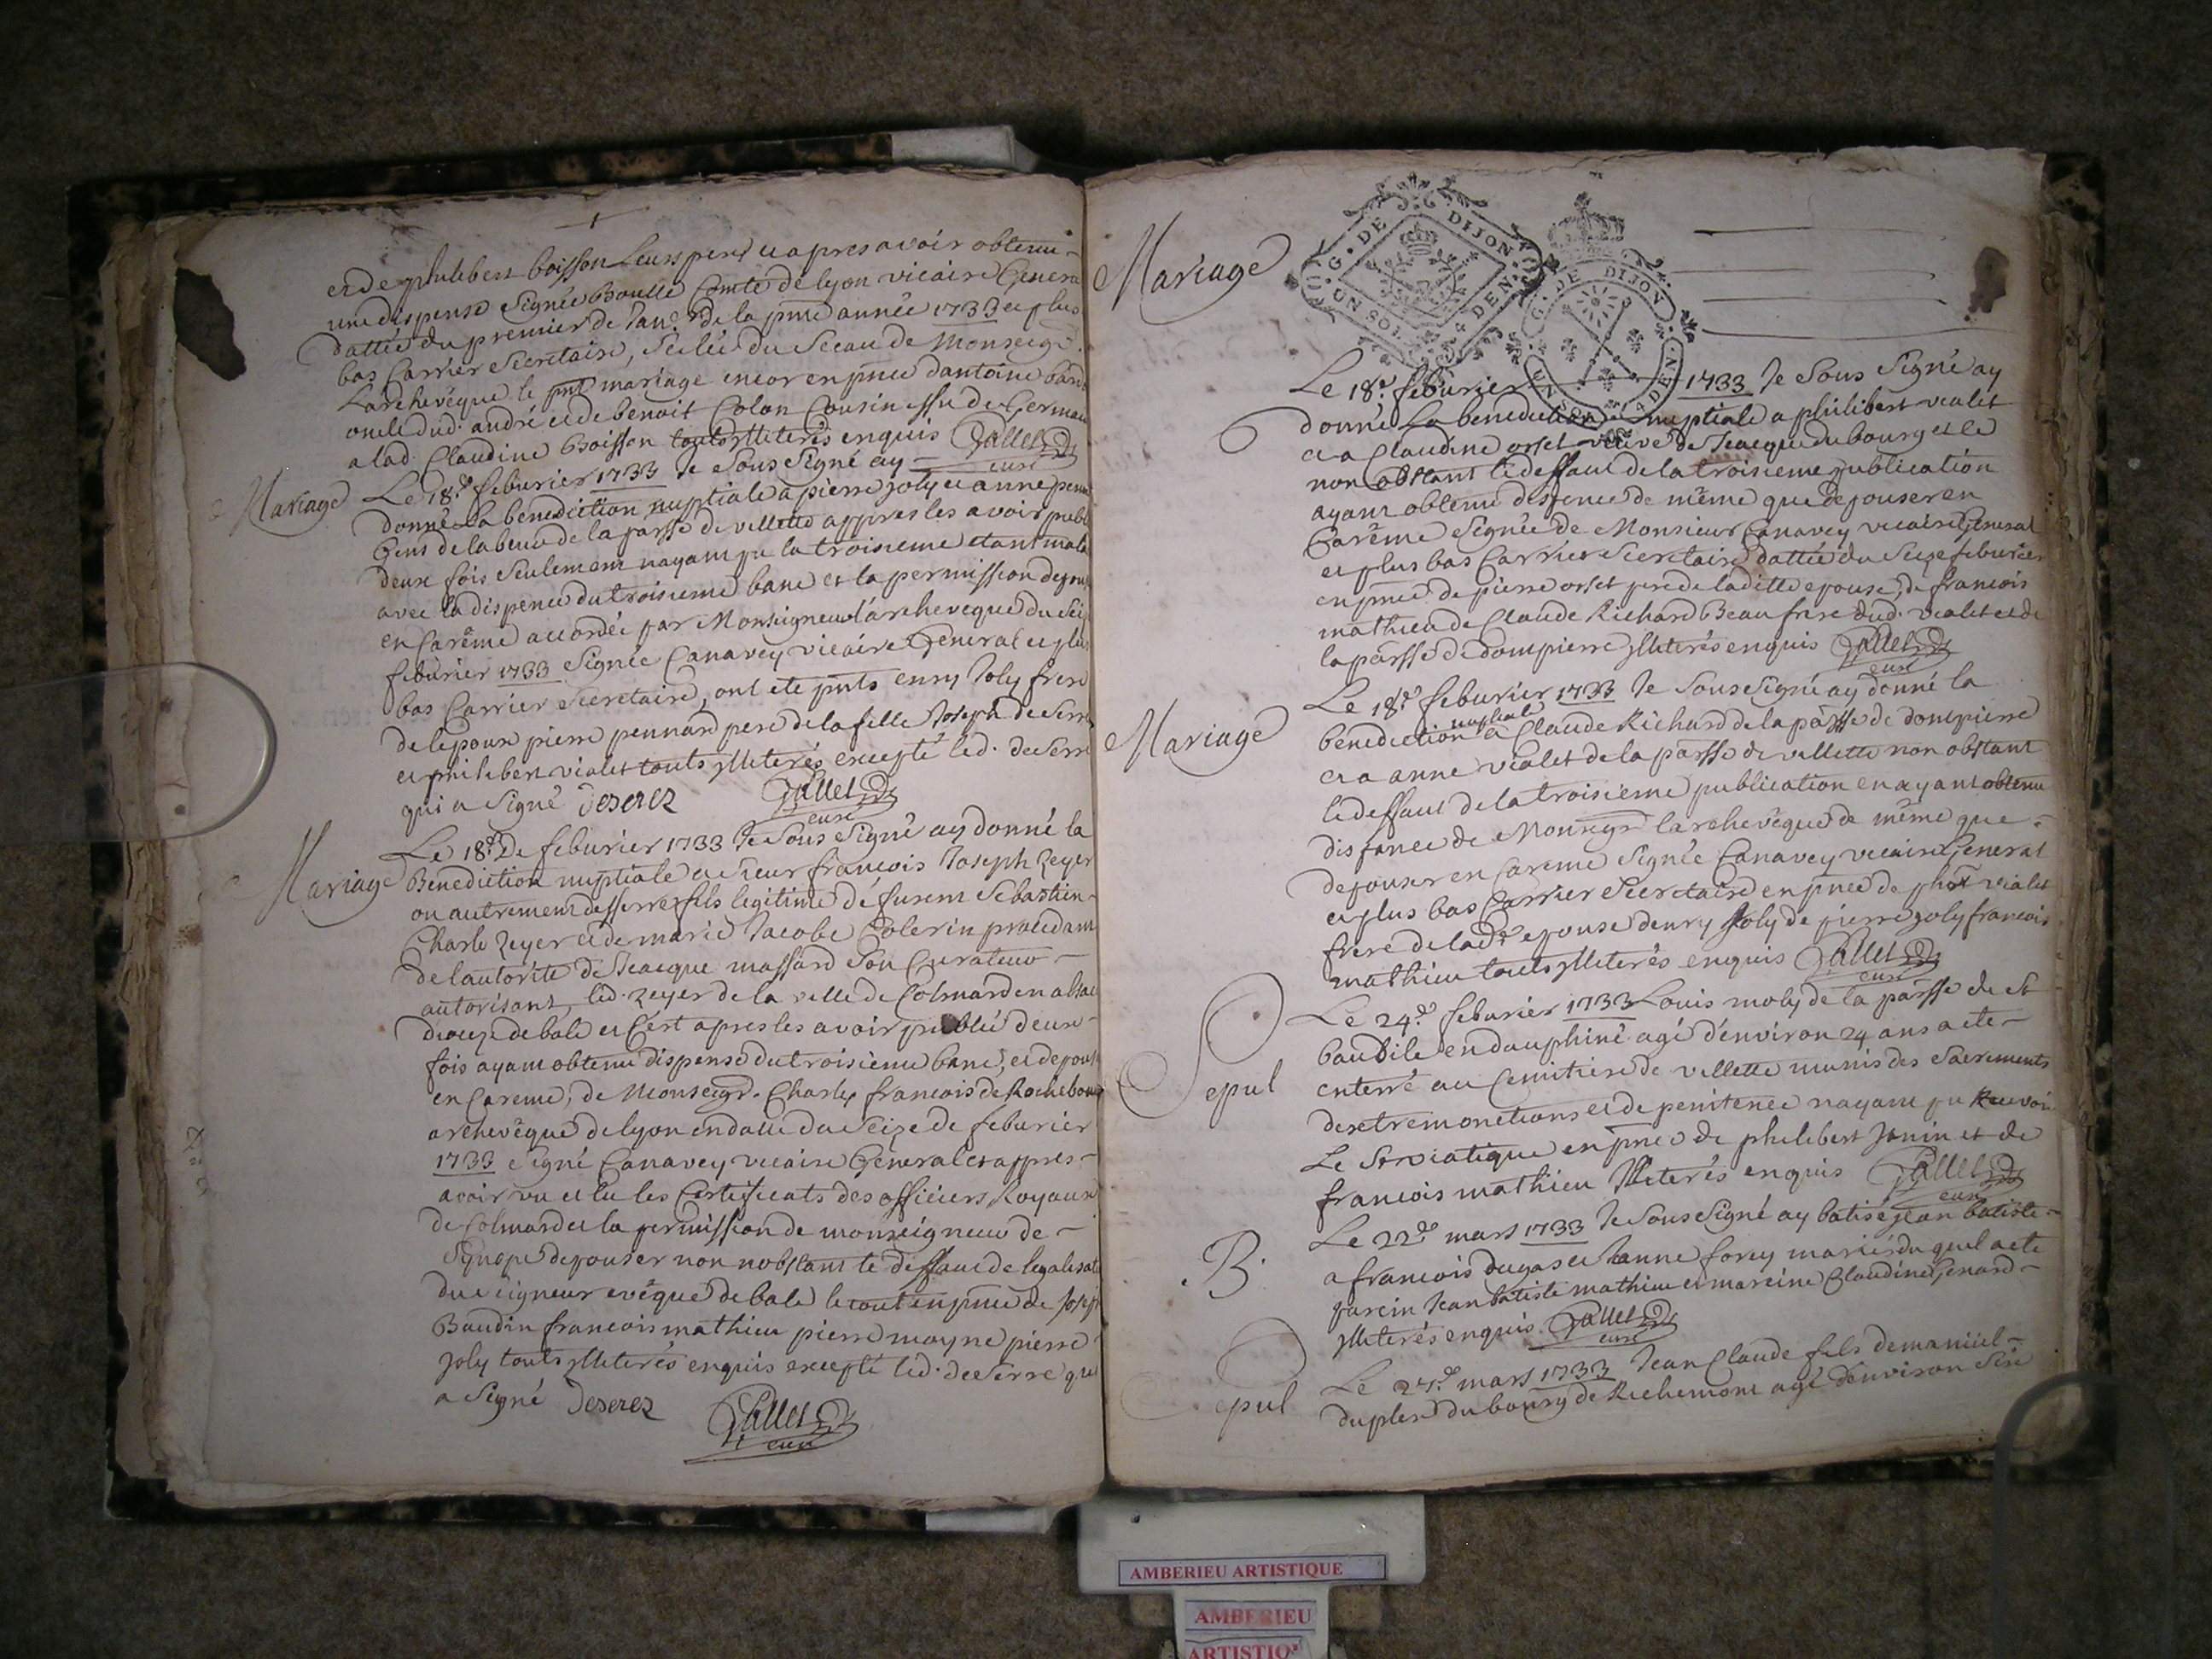 et de philibert boisson Leurs pere et apres avoir obtenu
une dispense Signée Comte de lyon vicaire Genera
dattée du premier de Janr de la pnte année 1733 et plus
bas Carrier Secretaire, Scelée du Sceau de Monseigr
Larchevêque le pnt mariage encor en pnce dantoine
oncle dud. andré et de benoit Colon Cousin issu de Germain
a lad. Claudine Boisson touts Illeterés enquis Gallet
curé
Mariage
Le 18e feburier 1733 Je Sous Signé ay
donné La bénédiction nuptiale a pierre joly et anne
de la parsse de villette appres les avoir publ
deux fois Seulement nayant pu la troisieme etant mala
avec la dispence du troisieme banc et la permission depous
en Carême accordée par Monseigneur l'archeveque du Sei
feburier 1733 Signée Canavey vicaire General et plus
bas Carrier Secretaire, ont ete pnts enry Joly frere
de lepoux pierre pennard pere de la fille Joseph de Serre
et philibert vialet touts Illeterés excepté led. deSerre
qui a Signé Deserez Gallet
curé
Mariage
Le 18e De feburier 1733 Je Sous Signé ay donné la
Benediction nuptiale a Sieur francois Joseph Zeyer
ou autrement desserre fils legitime de furent Sebastien
Charle Zeyer et de marie Jacobe Colerin procedant
de lautorité de Jeacque massard Son Curateur
autorisant led. Zeyer de la ville de Colmard en alsac
dioceze de bale et C'est apres les avoir publié deux
fois ayant obtenu dispense du troisieme banc, et depous
en Careme, de Monseigr. Charles francois de Rochebon
archevêque de lyon en datte du Seize de feburier
1733 Signé Canavey vicaire General et appres
avoir vu et lu les Certificats des officiers Royaux
de Colmard et la permission de monseigneur de
Synope depouser non nobstant le deffaut de legalisat
du Seigneur evêque de bale le tout en pnce de Josep
Baudin francois mathieu pierre moyne pierre
Joly touts Illeterés enquis excepté led. deSerre qui
a Signé Deserez Gallet
curé
Mariage
G. DE DIJON
UN SOL 4 DEN.
G. DE DIJON
4 DEN.
Le 18e feburier 1733 Je Sous Signé ay
donné La benediction nuptiale a philibert vialet
et a Claudine orset veuve de Jeacque du bourg et le
non obstant le deffaut de la troisieme publication
ayant obtenu dispence de même que depouser en
Carême Signée de Monsieur Canavey vicaire General
et plus bas Carrier Secretaire dattée du Seize feburier
en pnce de pierre orset pere de laditte epouse, de francois
mathieu de Claude Richard Beau frere dud. vialet et de
la parsse de dompierre Illeterés enquis Gallet
curé
Mariage
Le 18e feburier 1733 Je Sous Signé ay donné la
nuptiale
benediction a Claude Richard de la parsse de dompierre
et a anne vialet de la parsse de villette non obstant
le deffaut de la troisieme publication en ayant obtenu
dispance de Monseigr larchevêque de même que
depouser en Careme Signée Canavey vicaire General
et plus bas Carrier Secretaire en pnce de vialet
frere de ladte epouse denry Joly de pierre Joly francois
mathieu touts Illeterés enquis Gallet
curé
Sepul
Le 24e feburier 1733 Louis moly de la parsse de st
baudile en dauphiné agé d'environ 24 ans a ete
enterré au Cemitiere de villette munis des Sacrements
dextremonctions et de penitence nayant pu Recevoir
Le St viatique en pnce de philibert Janin et de
francois mathieu Illeterés enquis Gallet
curé
B.
Le 22e mars 1733 Je Sous Signé ay batisé jean batiste
a francois dugas et Janne forey mariés du quel a ete
parein Jean batiste mathieu et mareine Claudine Genard
Illeterés enquis Gallet
curé
Sepul
Le 27e mars 1733 Jean Claude fils demaniuel
duplex du bourg de Richemont agé d'environ Six
AMBERIEU ARTISTIQUE
AMBERIEU
ARTISTIQ